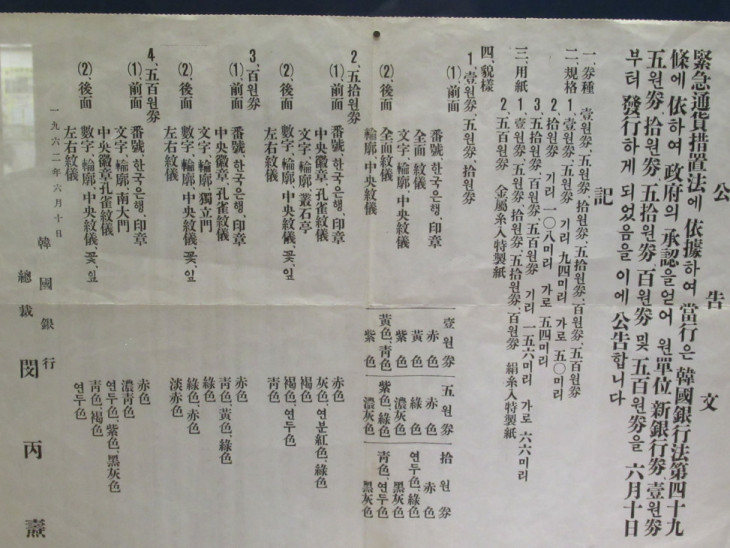 公告文
緊急通貨措置法에 依據하여 當行은 韓國銀行法第四十九
條에 依하여 政府의 承認을얻어 원單位 新銀行券, 壹원券
五원券, 拾원券, 五拾원券, 百원券 및 五百원券을 六月十日
부터 發行하게 되었음을 이에 公告합니다
記
一, 券種 壹원券, 五원券, 拾원券, 五拾원券, 百원券, 五百원券
二, 規格 1, 壹원券, 五원券 기리 九四미리 가로 五〇미리
2, 拾원券 기리 一〇八미리 가로 五四미리
3, 五拾원券, 百원券, 五百원券 기리 一五六미리 가로 六六미리
三, 用紙 1, 壹원券, 五원券, 拾원券, 五拾원券, 百원券 絹糸入特製紙
2, 五百원券 金属糸入特製紙
四, 貌樣
1, 壹원券, 五원券, 拾원券 壹원券 五원券 拾원券
(1), 前面 番號, 한국은행, 印章 赤色 赤色 赤色
全面紋儀 黃色 綠色 연두色, 綠色
文字 紫色 濃灰色 黑灰色
(2), 後面 全面紋儀 黃色, 青色 紫色, 綠色 青色, 연두色
輪廓, 中央紋儀 紫色 濃灰色 黑灰色
2, 五拾원券
(1), 前面 番號, 한국은행, 印章 赤色
中央徽章, 孔雀紋儀 灰色, 연분紅色, 綠色
文字, 輪廓, 叢石亭 褐色
(2), 後面 數字, 輪廓, 中央紋儀, 꽃, 잎 褐色, 연두色
左右紋儀 青色
3, 百원券
(1), 前面 番號, 한국은행, 印章 赤色
中央徽章, 孔雀紋儀 青色, 黃色, 綠色
文字, 輪廓, 獨立門 綠色
(2), 後面 數字, 輪廓, 中央紋儀, 꽃, 잎 綠色, 赤色
左右紋儀 淡赤色
4, 五百원券
(1), 前面 番號, 한국은행, 印章 赤色
文字, 輪廓, 南大門 濃青色
中央徽章, 孔雀紋儀 연두色, 紫色, 黑灰色
(2), 後面 數字, 輪廓, 中央紋儀, 꽃, 잎 青色, 褐色
左右紋儀 연두色
一九六二年六月十日
韓國銀行
總裁 閔丙燾